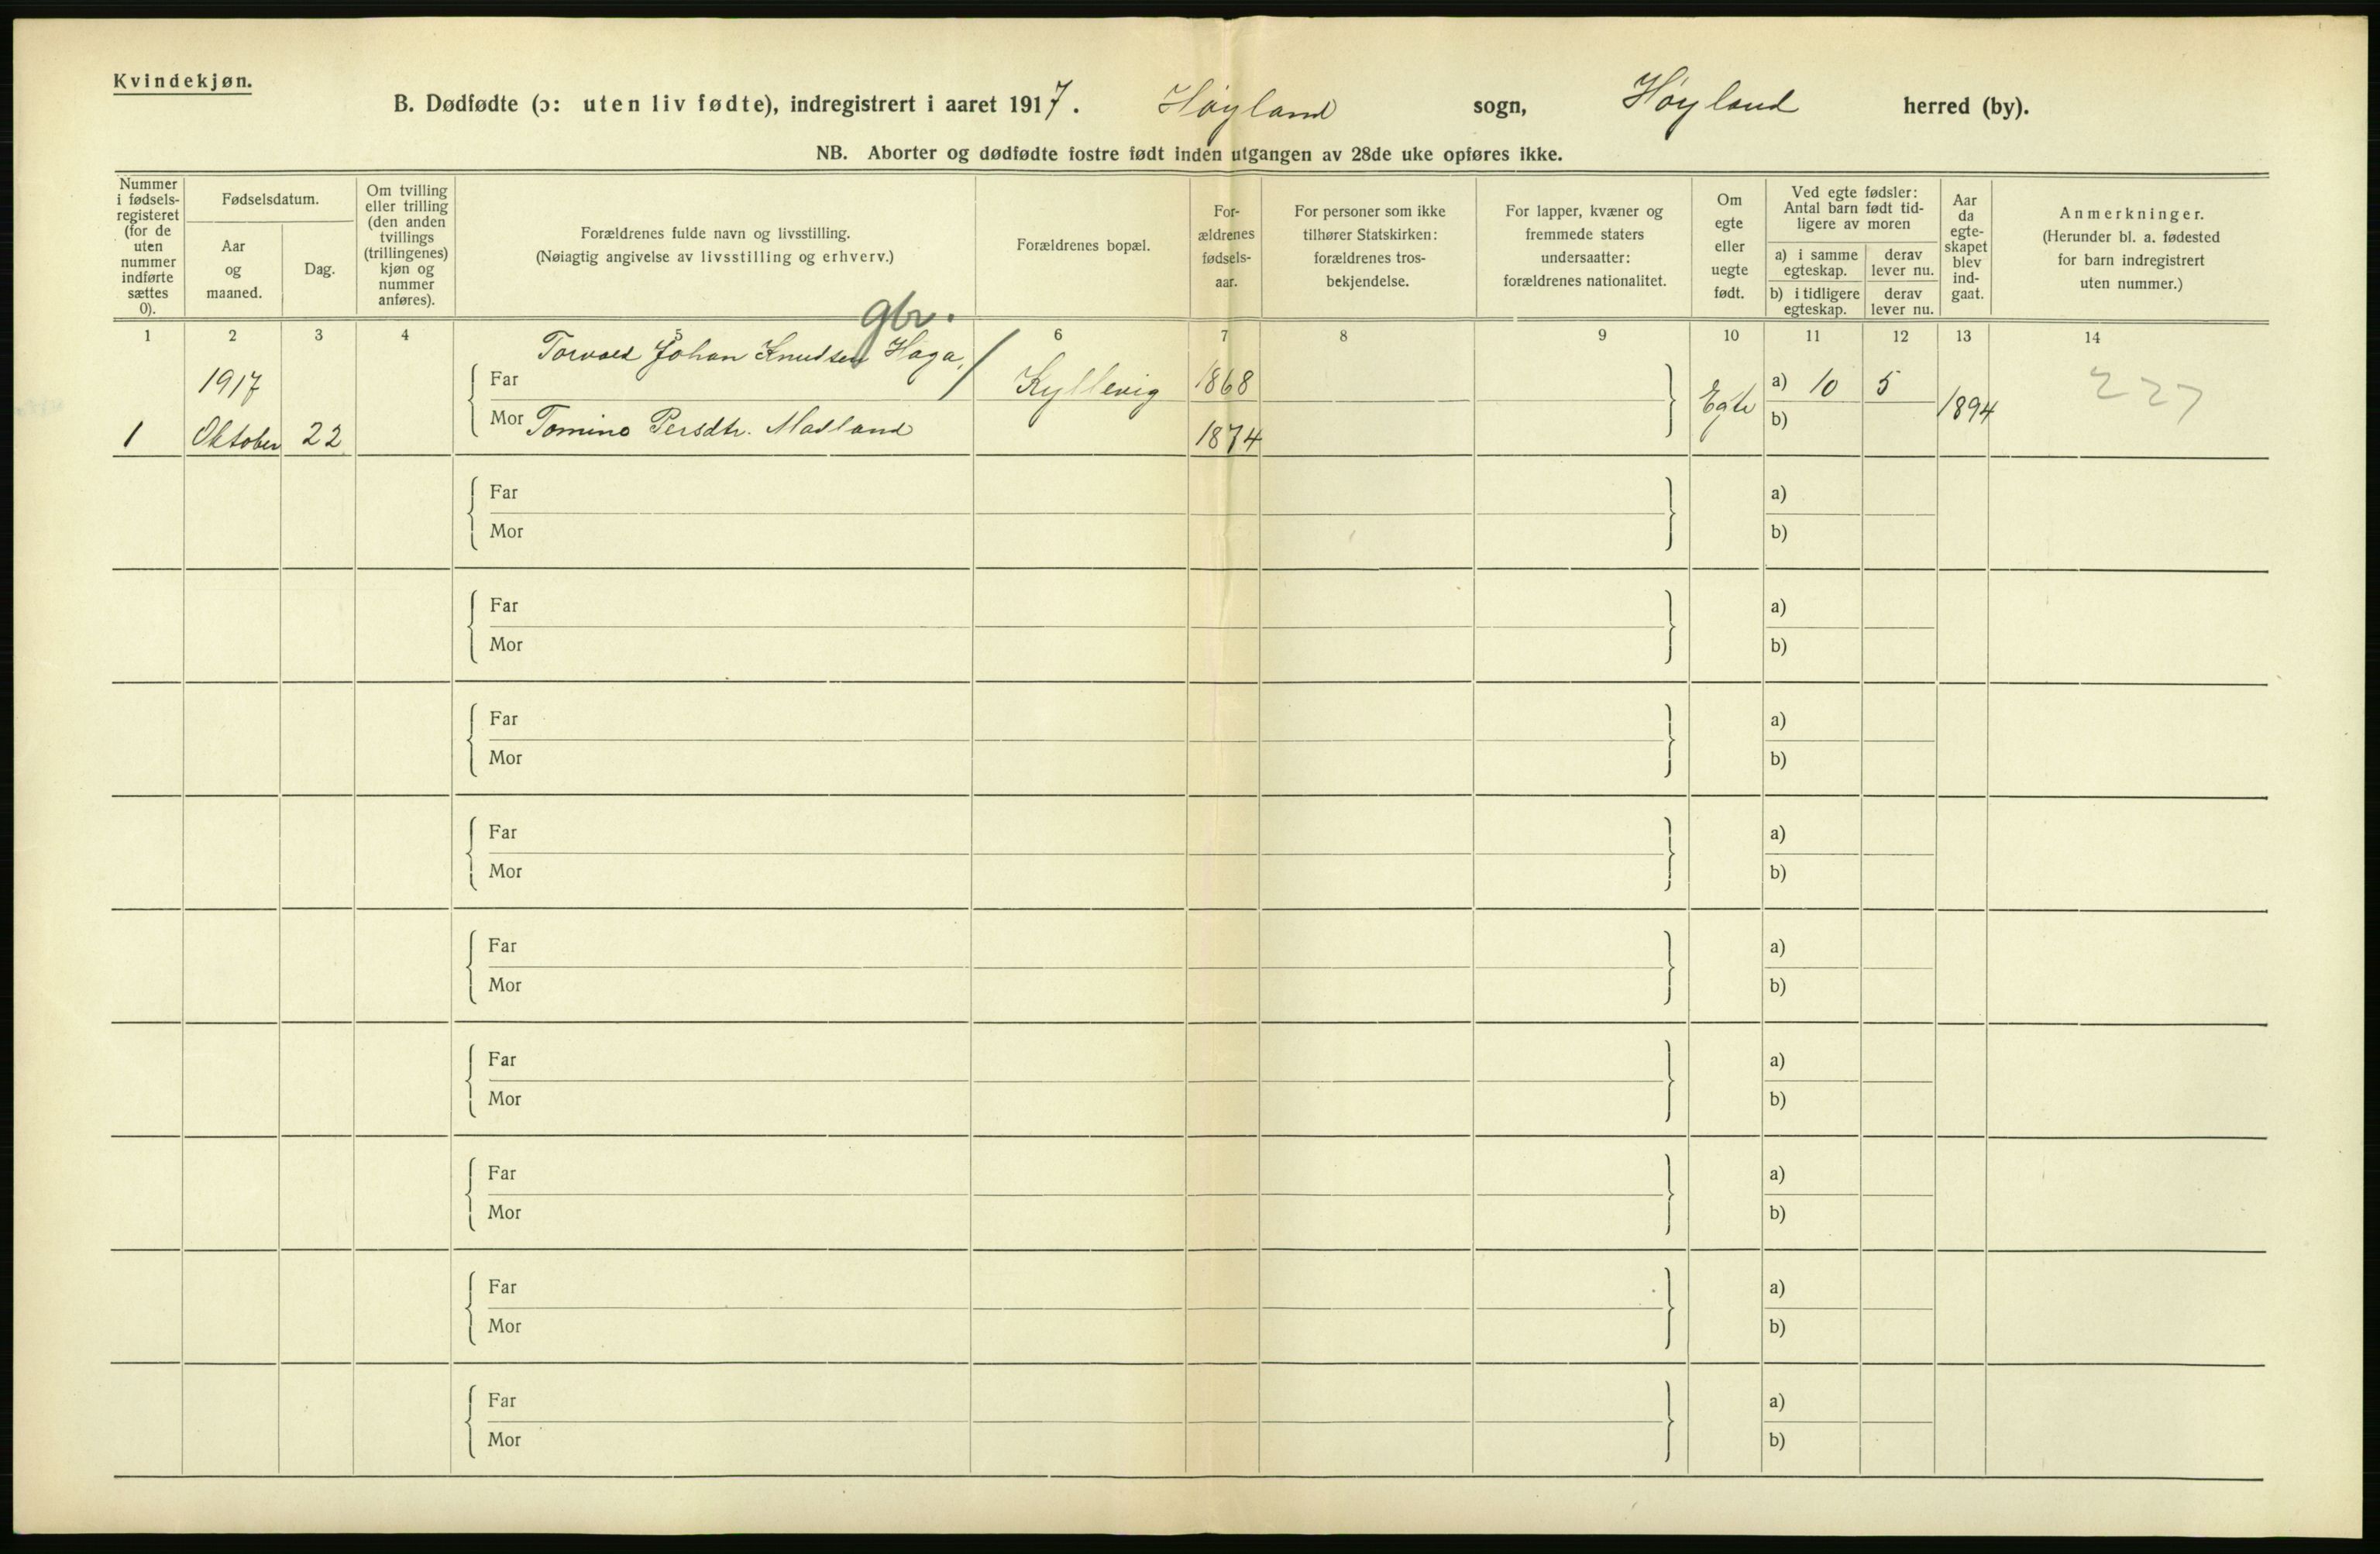 Kvindekjøn.
B. Dødfødte (ɔ: uten liv fødte), indregistrert i aaret 1917. Høyland sogn, Høyland herred (by).
NB. Aborter og dødfødte fostre født inden utgangen av 28de uke opføres ikke.
Nummer i fødsels-registeret (for de uten nummer indførte sættes 0).
Fødselsdatum.
Aar og maaned.
Dag.
Om tvilling eller trilling (den anden tvillings (trillingenes) kjøn og nummer anføres).
Forældrenes fulde navn og livsstilling.
(Nøiagtig angivelse av livsstilling og erhverv.)
Forældrenes bopæl.
For-ældrenes fødsels-aar.
For personer som ikke tilhører Statskirken: forældrenes tros-bekjendelse.
For lapper, kvæner og fremmede staters undersaatter: forældrenes nationalitet.
Om egte eller uegte født.
Ved egte fødsler: Antal barn født tid-ligere av moren
a) i samme egteskap.
derav lever nu.
b) i tidligere egteskap.
derav lever nu.
Aar da egte-skapet blev ind-gaat.
Anmerkninger.
(Herunder bl. a. fødested for barn indregistrert uten nummer.)
1 2 3 4 5 6 7 8 9 10 11 12 13 14
gbr.
Torvald Johan Knudsen Haga,
1917 Far Kyllevig 1868 Egte a) 10 5 1894 227
1 Oktober 22 Mor Tomine Persdtr. Madland 1874 b)
Far a)
Mor b)
Far a)
Mor b)
Far a)
Mor b)
Far a)
Mor b)
Far a)
Mor b)
Far a)
Mor b)
Far a)
Mor b)
Far a)
Mor b)
Far a)
Mor b)